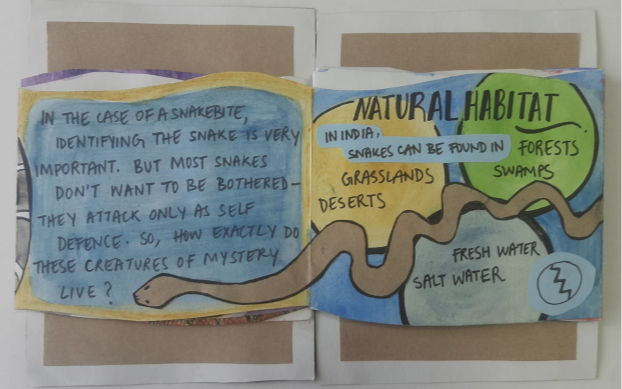 IN THE CASE OF A SNAKEBITE,
IDENTIFYING THE SNAKE IS VERY
IMPORTANT. BUT MOST SNAKES
DON'T WANT TO BE BOTHERED–
THEY ATTACK ONLY AS SELF
DEFENCE. SO, HOW EXACTLY DO
THESE CREATURES OF MYSTERY
LIVE?
NATURAL HABITAT
IN INDIA,
SNAKES CAN BE FOUND IN
FORESTS
SWAMPS
GRASSLANDS
DESERTS
FRESH WATER
SALT WATER